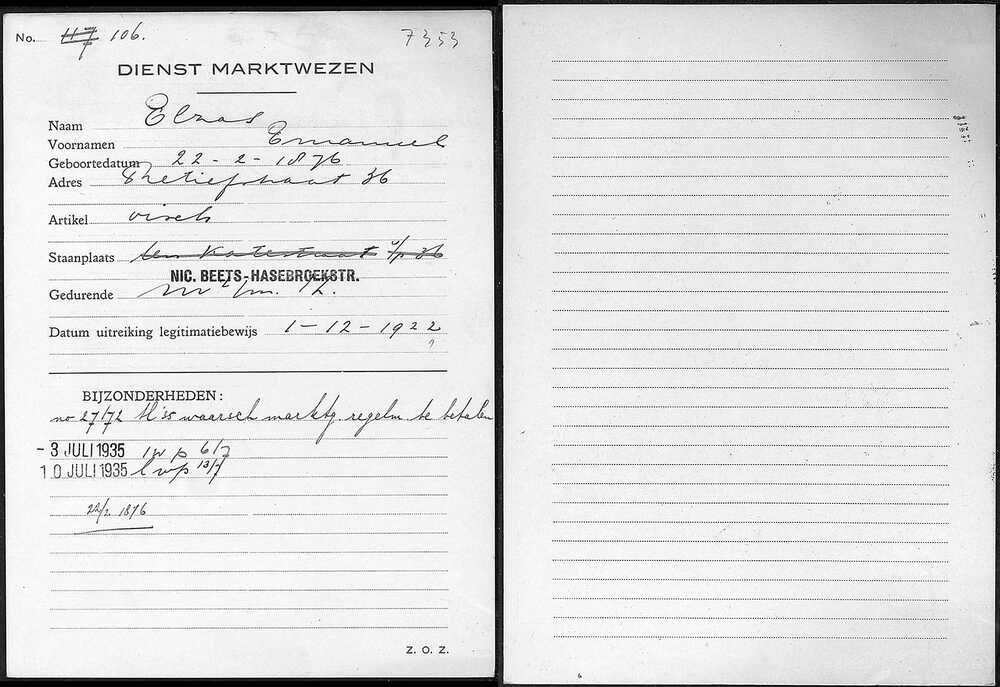 No. 117 106.
7353
DIENST MARKTWEZEN
Naam Elzas
Voornamen Emanuel
Geboortedatum 22-2-1876
Adres Retiefstraat 36
Artikel visch
Staanplaats ten Katestraat 36
NIC. BEETS-HASEBROEKSTR.
Gedurende
Datum uitreiking legitimatiebewijs 1-12-1922
?
BIJZONDERHEDEN:
no 27/72 waarsch marktg. regelm te betalen
- 3 JULI 1935 p 6/7
10 JULI 1935 13/7
22/2 1876
Z. O. Z.